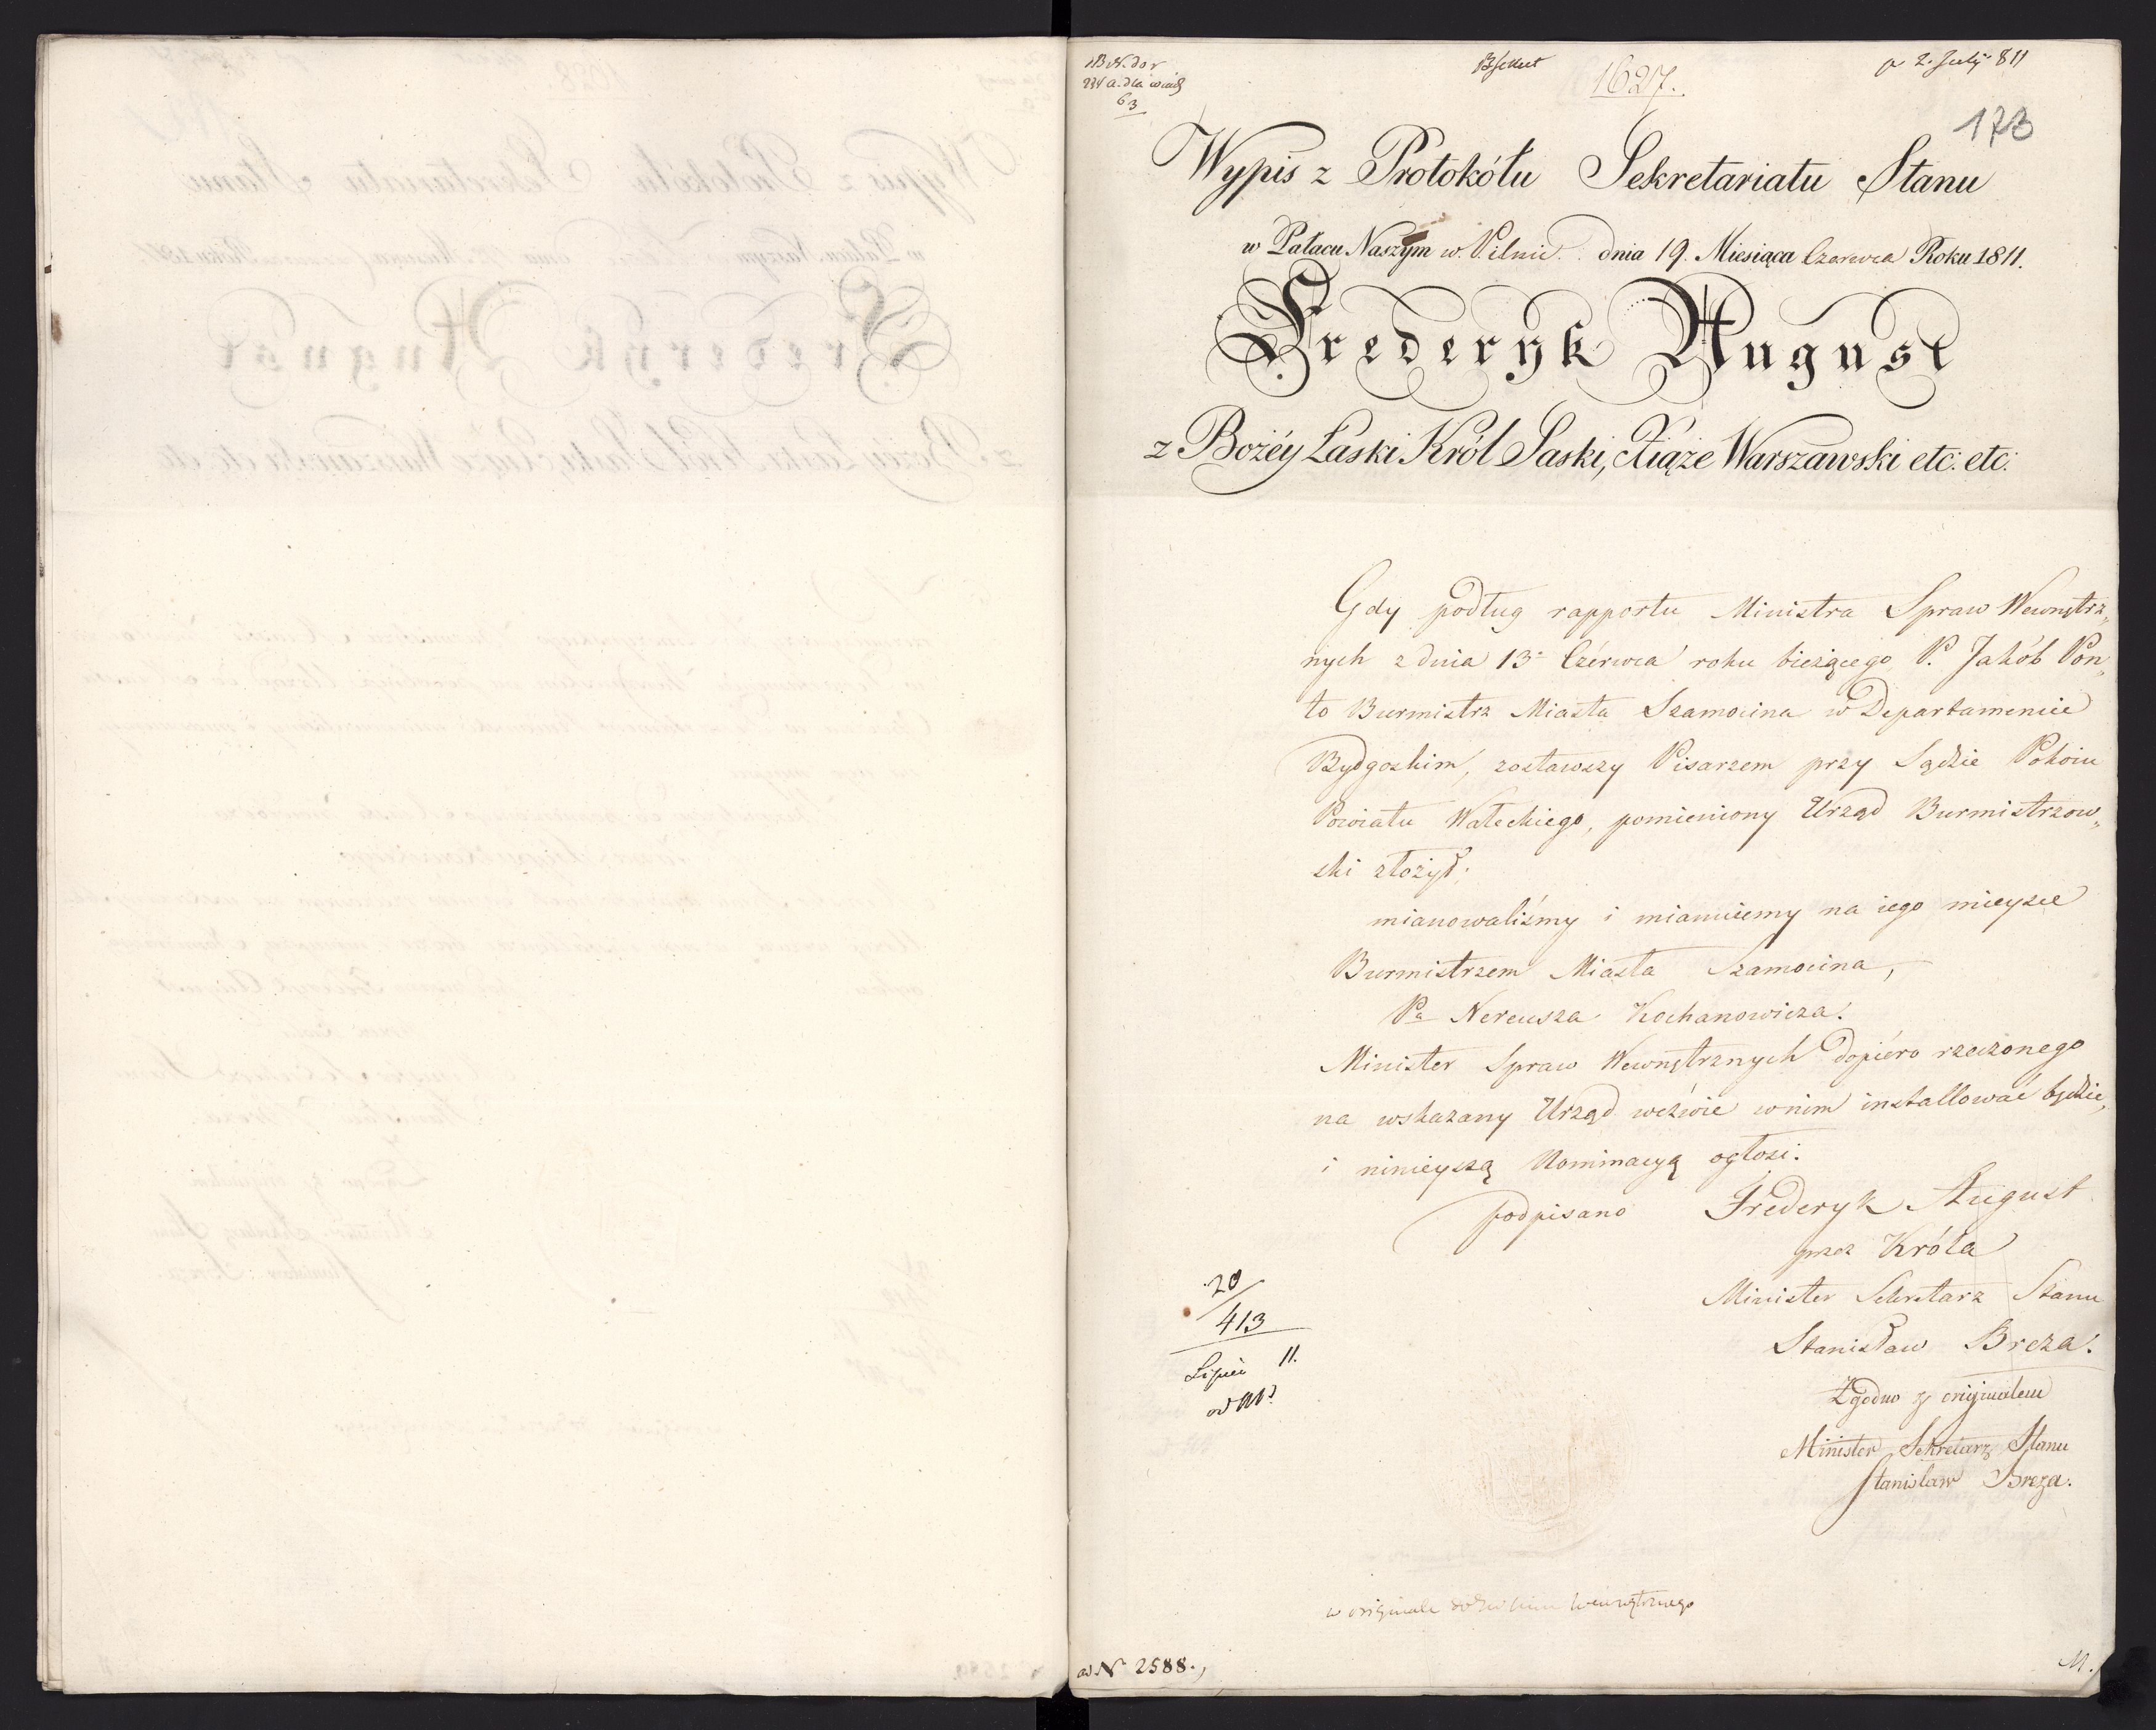 1627.
p 2. July 811
173
63
Wypis z Protokółu Sekretariatu Stanu
w Pałacu Naszym w Pilnic. dnia 19. Miesiąca Czerwca Roku 1811.
Frederyk August
z Bożéy Łaski Król Saski, Xiąże Warszawski etc. etc.
Gdy podług rapportu Ministra Spraw Wewnętrz„
nych z dnia 13. Czérwca roku bieżącego P. Jakób Pon„
to Burmistrz Miasta Szamocina w Departamencie
Bydgoskim, zostawszy Pisarzem przy Sądzie Pokoiu
Powiatu Wałeckiego, pomieniony Urząd Burmistrzow„
ski złożył:
mianowaliśmy i mianuiemy na iego mieysce
Burmistrzem Miasta Szamocina,
Pa Nereusza Kochanowicza.
Minister Spraw Wewnętrznych dopiéro rzeczonego
na wskazany Urząd wezwie w nim installować będzie,
i ninieyszą Nominacyą ogłosi.
podpisano Fréderyk August
przez Króla
Minister Sekretarz Stanu
Stanisław Breza.
20
413
Lipca 11.
Zgodno z oryginałem
Minister Sekretarz Stanu
Stanisław Breza.
w originale
ad N 2588.
M.